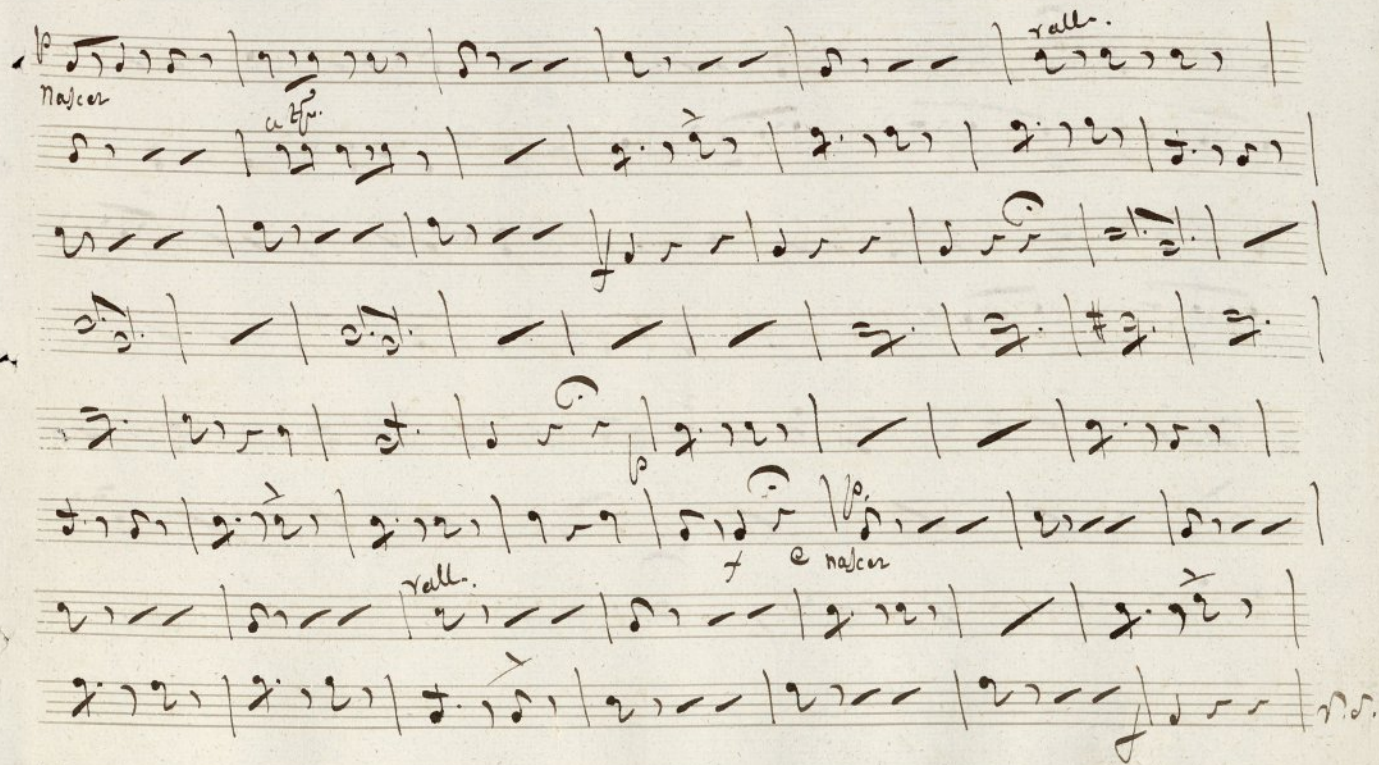 rall.
p
nascer
a tpo.
f
p
p.
f e nascer
rall.
f
V.S.